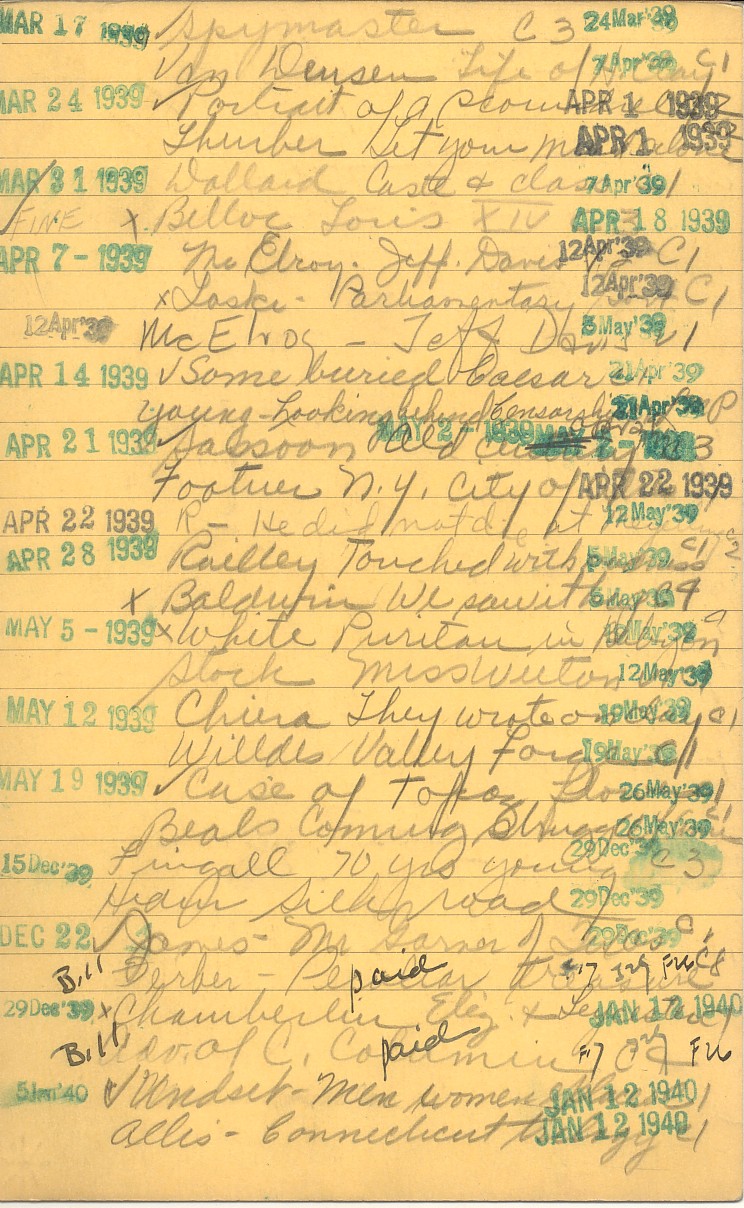 MAR 17 1939 ✓ Spymaster C 3 24Mar'39
✓ Van Deusen Life of H. Clay C1 7Apr'39
MAR 24 1939 ✓ Portrait of a APR 1 1939
Thurber Let your mind alone APR 1 1939
MAR 31 1939 Dollard Caste & class C1 7Apr'39
FINE x Belloc Louis XIV APR 18 1939
APR 7 - 1939 McElroy - Jeff. Davis 12Apr'39 C1
x Laski - Parliamentary 12Apr'39 C1
12Apr'39 McElroy - Jeff Davis 5May'39
APR 14 1939 ✓ Some buried Caesar C1 21Apr'39
Young - Looking behind Censorship 21Apr'39
APR 21 1939 ✓ Sassoon Old Century MAY 2 - 1939 C3
Footner N.Y. City of APR 22 1939
APR 22 1939 R - He did not die at 12May'39
APR 28 1939 Railley Touched with C1 5May'39
x Baldwin We saw it 5May'39
MAY 5 - 1939 x White Puritan in Babylon
Stock Miss Weeton 12May'39
MAY 12 1939 Chiera They wrote on clay C1 19May'39
Willdes Valley Forge C1 19May'39
MAY 19 1939 ✓ Case of 26May'39
Beals Coming Struggle 26May'39
15Dec'39 Fingall 70 yrs young C3 29Dec'39
Hedin Silk road 29Dec'39
DEC 22 ✓ James - Mr Garner of Texas C1 29Dec'39
Bill Ferber - Peculiar treasure paid F26 C8
29Dec'39 x Chamberlin Eliz. & Leicester JAN 12 1940
Bill Adv. of C. Columbin paid F26
5Jan'40 ✓ Undset - Men women JAN 12 1940
Allis - Connecticut trilogy C1 JAN 12 1940